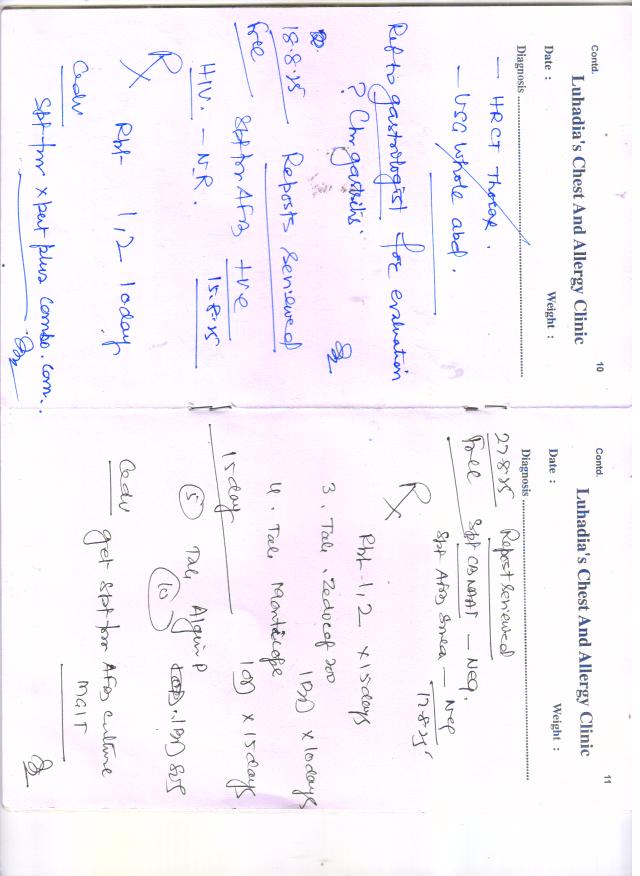 Contd.
10
Luhadia's Chest And Allergy Clinic
Date :
Weight :
Diagnosis
— HRCT Thorax.
— USG Whole abd.
Ref to gastrologist for evaluation
? Chr gastritis
18.8.25 Reports reviewed
Free Sptm AFB +ve
15.8.25
HIV. — N.R.
Rx
Rpt 1,2 10day
Cadv
Sptm xpert plus combo.
Contd.
11
Luhadia's Chest And Allergy Clinic
Date :
Weight :
Diagnosis
27.8.25 Report reviewed
Free Spt CBNAAT — Neg.
Spt AFB Smea — Neg
17.8.25
Rx
Rpt - 1,2 x 15days
3. Tab. Zedocef 200
1BD x 10days
4. Tab
1OD x 15days
15day
5 Tab Algin P
10
1BD SOS
Cadv get Sptm AFB culture
MGIT